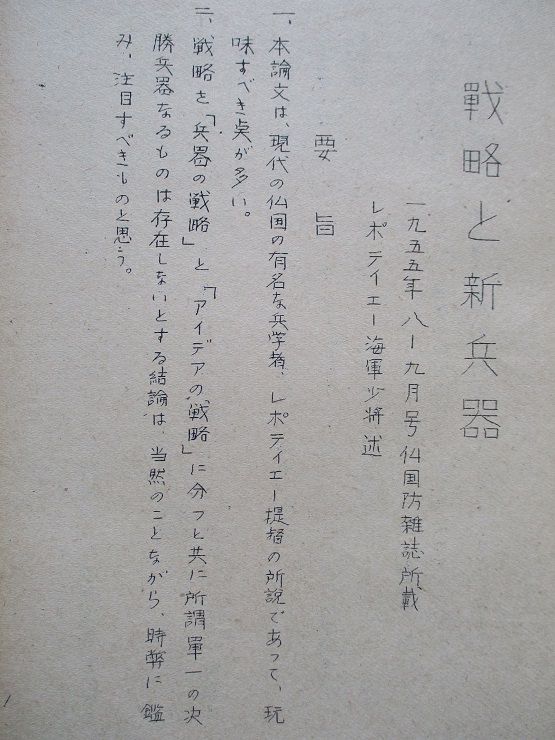 戦略と新兵器
一九五五年八ー九月号仏国防雑誌所載
レポテイエー海軍少将述
要旨
一、本論文は、現代の仏国の有名な兵学者、レポテイエー提督の所説であって、玩
味すべき点が多い。
二、戦略を「兵器の戦略」と「アイデアの戦略」に分つと共に所謂単一の決
勝兵器なるものは存在しないとする結論は、当然のことながら、時弊に鑑
み、注目すべきものと思う。